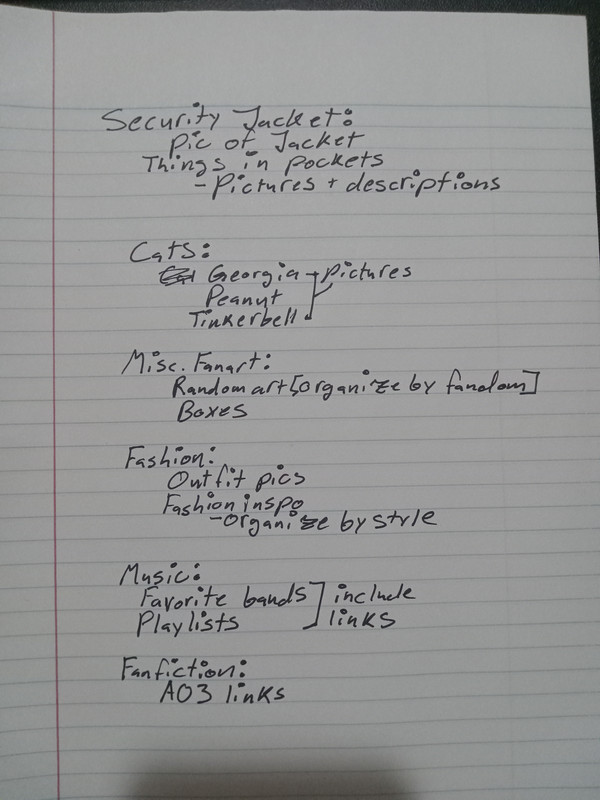 Security Jacket:
Pic of Jacket
Things in pockets
- Pictures + descriptions
Cats:
Georgia - pictures
Peanut
Tinkerbell
Misc. Fanart:
Random art [organize by fandom]
Boxes
Fashion:
Outfit pics
Fashion inspo
- organize by style
Music:
Favorite bands ] include
Playlists links
Fanfiction:
AO3 links